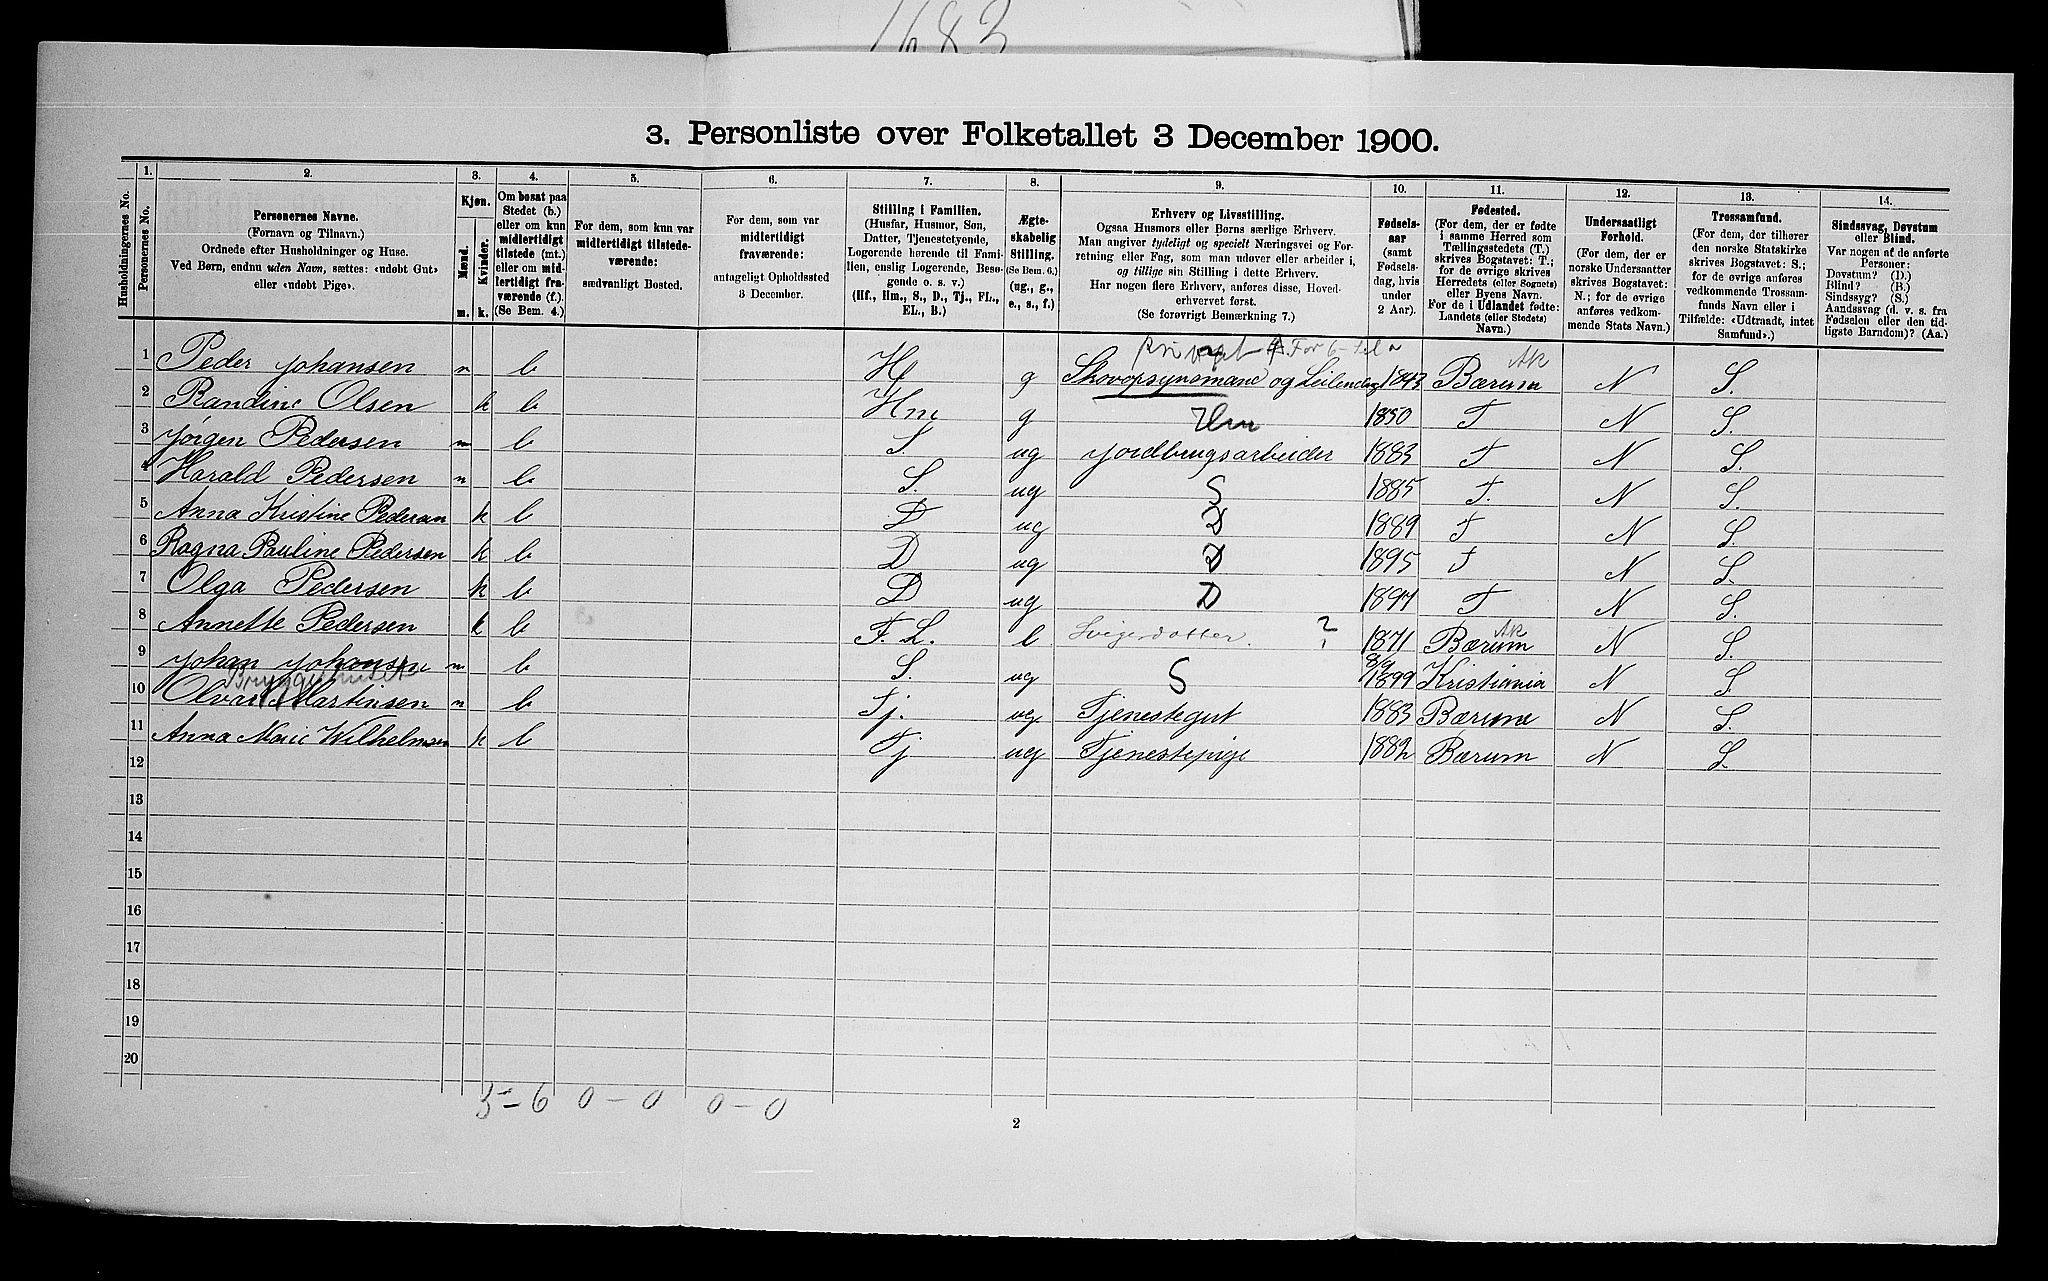 1683
3. Personliste over Folketallet 3 December 1900.
Husholdningernes No.
1.
Personernes No.
2.
Personernes Navne.
(Fornavn og Tilnavn.)
Ordnede efter Husholdninger og Huse.
Ved Børn, endnu uden Navn, sættes: «udøbt Gut»
eller «udøbt Pige».
3.
Kjøn.
Mænd.
Kvinder.
m. k.
4.
Om bosat paa
Stedet (b.)
eller om kun
midlertidigt
tilstede (mt.)
eller om mid-
lertidigt fra-
værende (f.).
(Se Bem. 4.)
5.
For dem, som kun var
midlertidigt tilstede-
værende:
sædvanligt Bosted.
6.
For dem, som var
midlertidigt
fraværende:
antageligt Opholdssted
3 December.
7.
Stilling i Familien.
(Husfar, Husmor, Søn,
Datter, Tjenestetyende,
Logerende hørende til Fami-
lien, enslig Logerende, Besø-
gende o. s. v.)
(Hf., Hm., S., D., Tj., FL.,
EL., B.)
8.
Ægte-
skabelig
Stilling.
(Se Bem. 6.)
(ug., g.,
e., s., f.)
9.
Erhverv og Livsstilling.
Ogsaa Husmors eller Børns særlige Erhverv.
Man angiver tydeligt og specielt Næringsvei og For-
retning eller Fag, som man udøver eller arbeider i,
og tillige sin Stilling i dette Erhverv.
Har nogen flere Erhverv, anføres disse, Hoved-
erhvervet først.
(Se forøvrigt Bemærkning 7.)
10.
Fødsels-
aar
(samt
Fødsels-
dag, hvis
under
2 Aar).
11.
Fødested.
(For dem, der er fødte
i samme Herred som
Tællingsstedets (T.)
skrives Bogstavet: T.;
for de øvrige skrives
Herredets (eller Sognets)
eller Byens Navn.
For de i Udlandet fødte:
Landets (eller Stedets)
Navn.)
12.
Undersaatligt
Forhold.
(For dem, der er
norske Undersaatter
skrives Bogstavet:
N.; for de øvrige
anføres vedkom-
mende Stats Navn.)
13.
Trossamfund.
(For dem, der tilhører
den norske Statskirke
skrives Bogstavet: S.;
for de øvrige anføres
vedkommende Trossam-
funds Navn eller i
Tilfælde: «Udtraadt, intet
Samfund».)
14.
Sindssvag, Døvstum
eller Blind.
Var nogen af de anførte
Personer:
Døvstum? (D.)
Blind? (B.)
Sindssyg? (S.)
Aandssvag (d. v. s. fra
Fødselen eller den tid-
ligste Barndom)? (Aa.)
privat
1 Peder Johansen m b H g Skovopsynsmand og Leilending 1843 Bærum Ak N S.
2 Randine Olsen k b Hm g Hm 1850 T N S.
3 Jørgen Pedersen m b S. ug Jordbrugsarbeider 1883 T N S.
4 Harald Pedersen m b S. ug S 1885 T. N S.
5 Anna Kristine Pedersen k b D ug D 1889 T N S.
6 Ragna Pauline Pedersen k b D ug D 1895 T N S.
7 Olga Pedersen k b D ug D 1897 T N S.
8 Annette Pedersen k b F. L. e Svigerdatter. ? 1871 Bærum Ak N S.
9 Johan Johansen m b S. ug S 8/9 1899 Kristiania N S.
Bryggerhuset
10 Olvar Martinsen m b Tj. ug Tjenestegut 1883 Bærum N S.
11 Anna Marie Wilhelmsen k b Tj ug Tjenestepige 1882 Bærum N S.
12
13
14
15
16
17
18
19
20
5-6 0-0 0-0
2